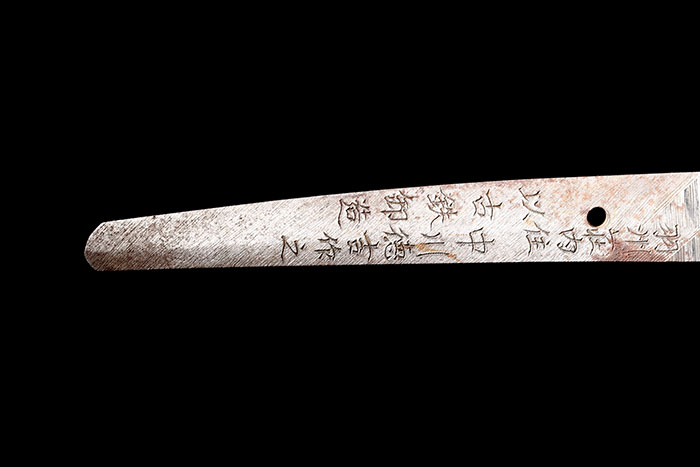 羽州荘内住中川徳吉作之
以古鉄卸造